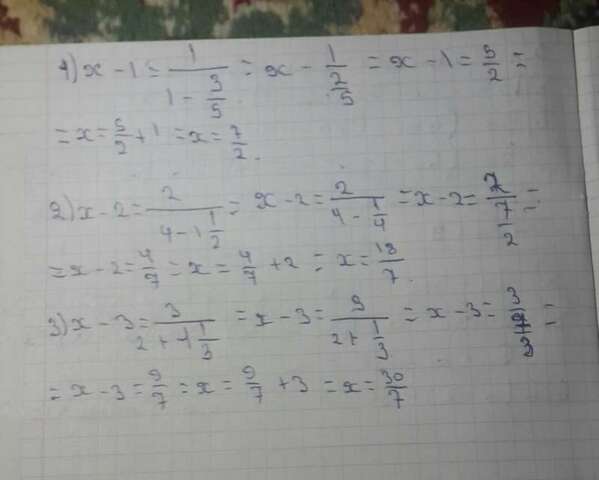 1) x - 1 = 1/(1 - 3/5) = x - 1/(2/5) = x - 1 = 5/2 =
= x = 5/2 + 1 = x = 7/2.
2) x - 2 = 2/(4 - 1 1/2) = x - 2 = 2/(4 - 1/4) = x - 2 = 2/(7/2) =
= x - 2 = 4/7 = x = 4/7 + 2 = x = 18/7.
3) x - 3 = 3/(2 + 1 1/3) = x - 3 = 9/(2 + 1/3) = x - 3 = 3/(7/3) =
= x - 3 = 9/7 = x = 9/7 + 3 = x = 30/7